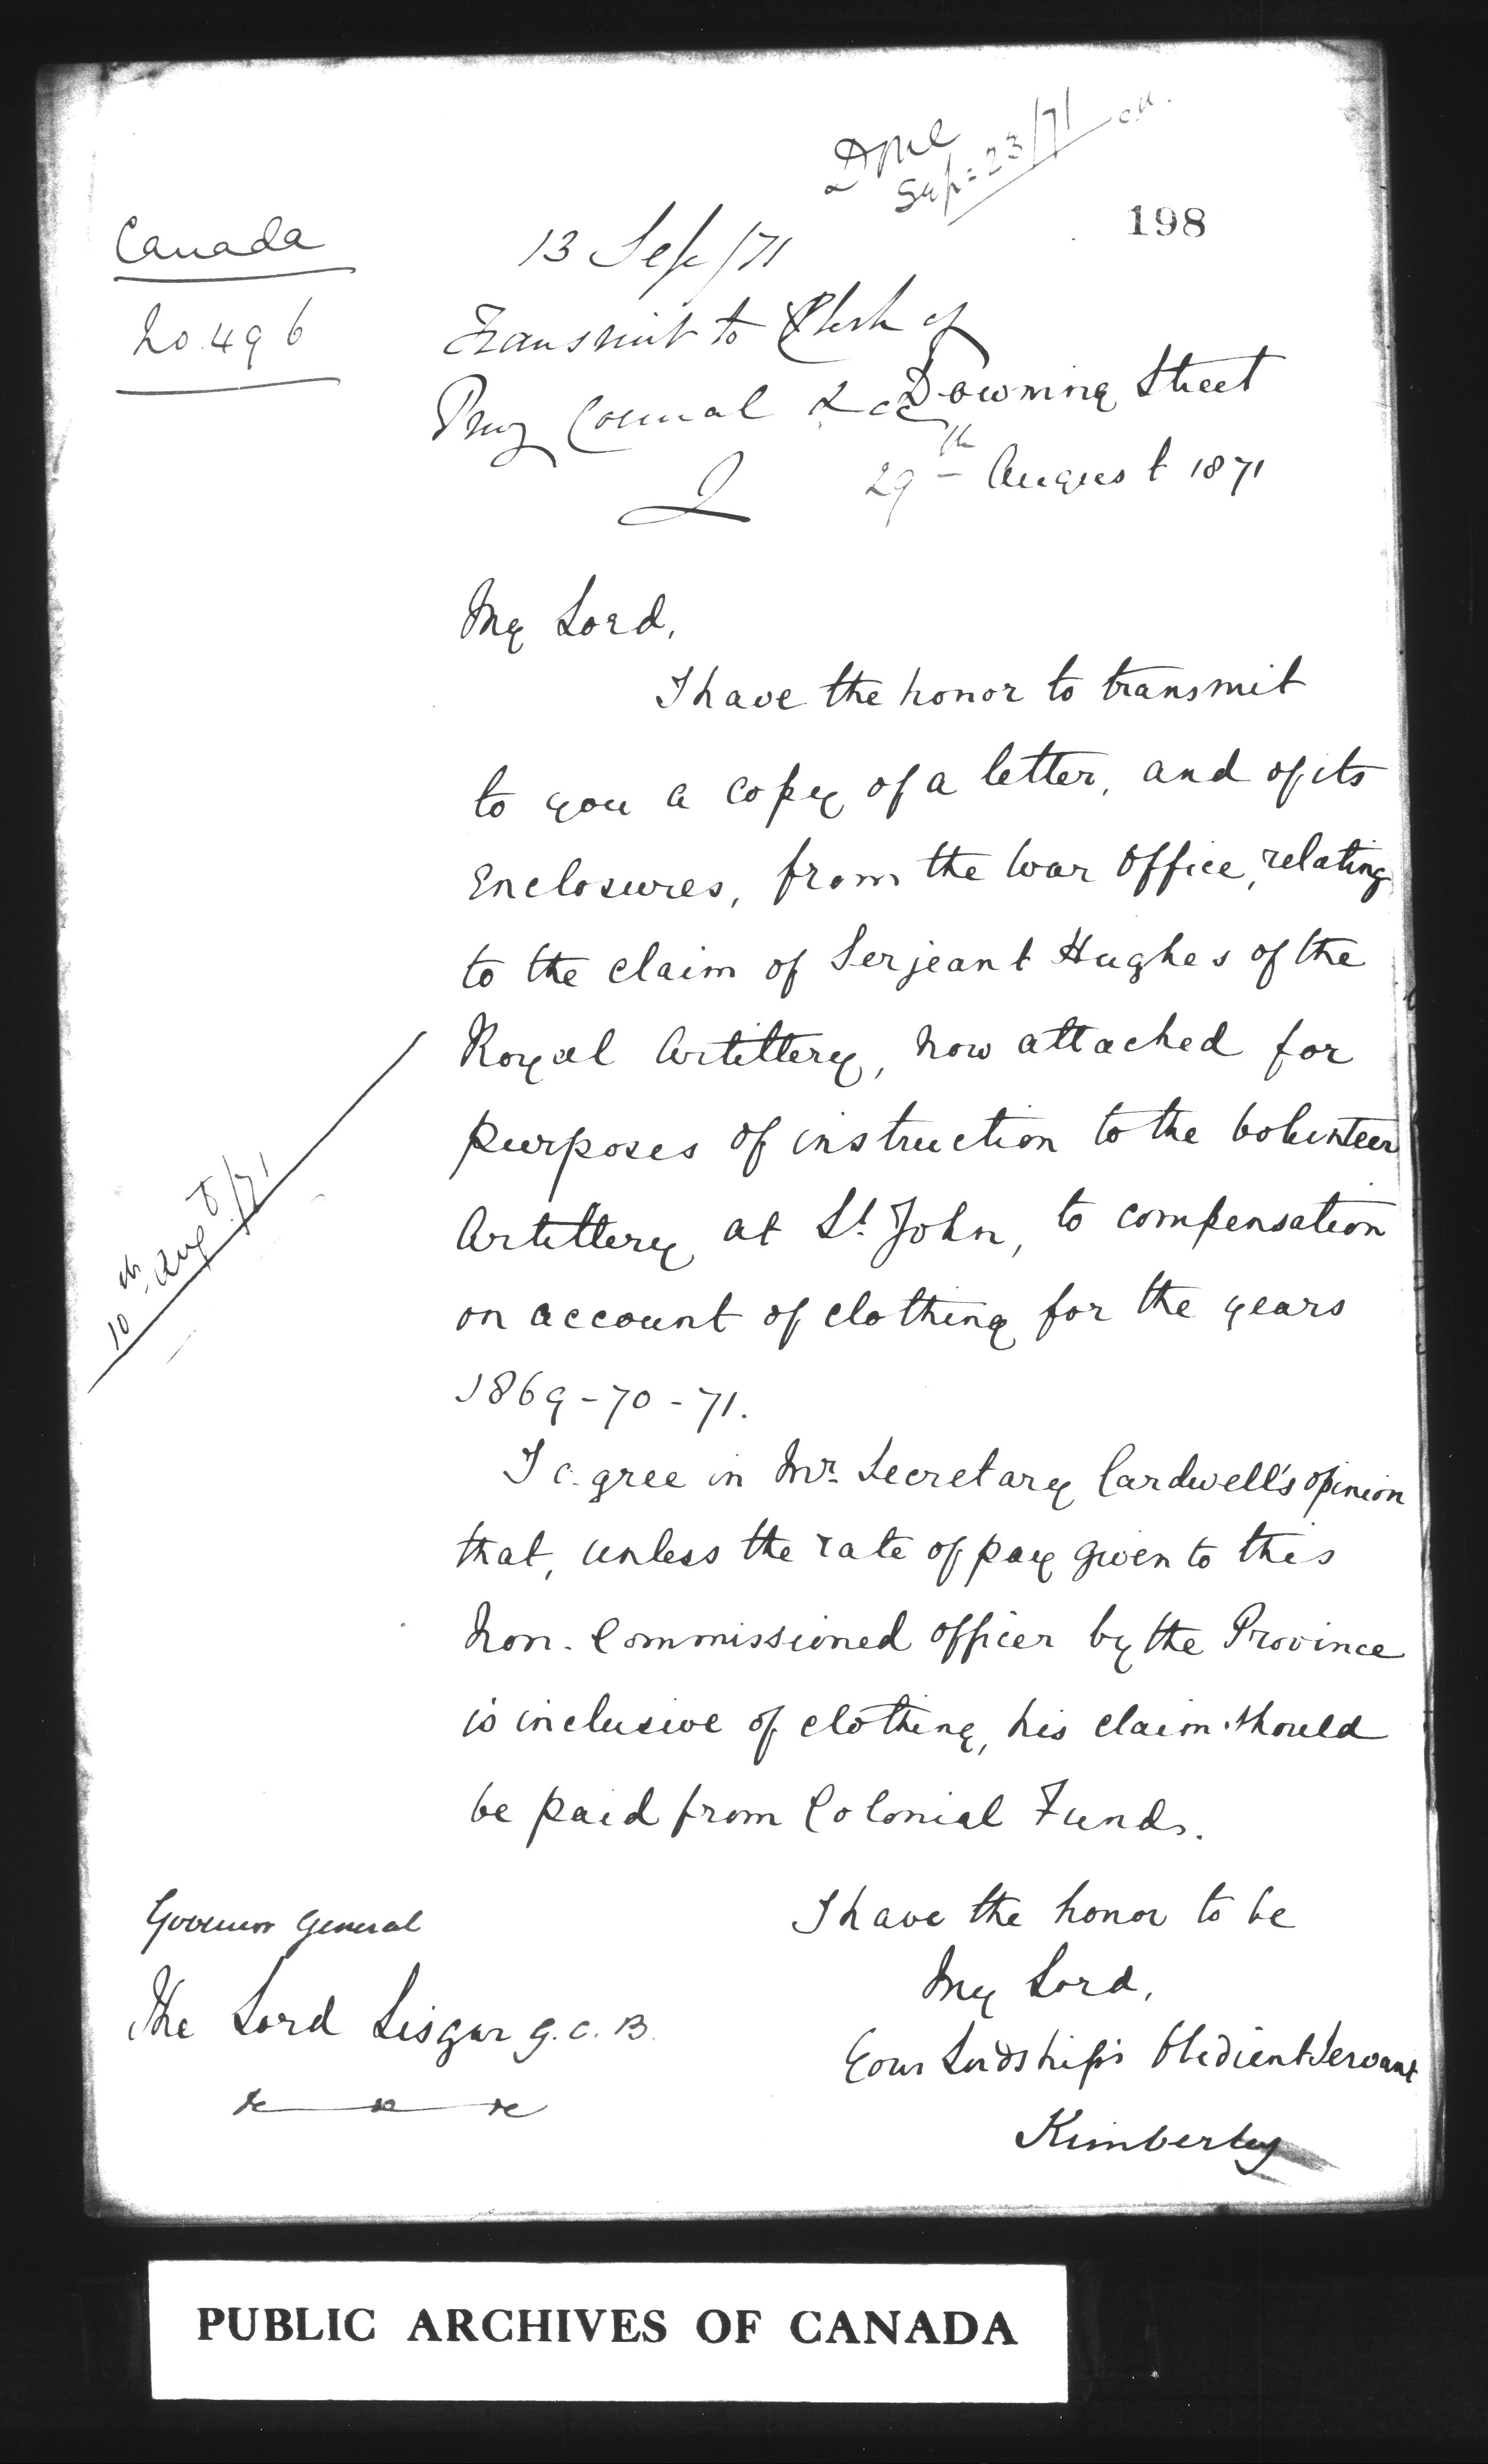 Done
Sep: 23/71
198
Canada
No. 496
13 Sep/71
Transmit to Clerk of
Privy Council &cc
Downing Street
29th August 1871
My Lord,
I have the honor to transmit
to you a copy of a letter, and of its
Enclosures, from the War Office, relating
to the claim of Serjeant Hughes of the
Royal Artillery, now attached for
purposes of instruction to the Volunteer
Artillery at St. John, to compensation
on account of clothing for the years
1869-70-71.
10th Aug /71
I agree in Mr. Secretary Cardwell's opinion
that, unless the rate of pay given to this
Non-Commissioned officer by the Province
is inclusive of clothing, his claim should
be paid from Colonial Funds.
I have the honor to be
My Lord,
Your Lordship's Obedient Servant
Kimberley
Governor General
The Lord Lisgar G.C.B.
&c &c &c
PUBLIC ARCHIVES OF CANADA